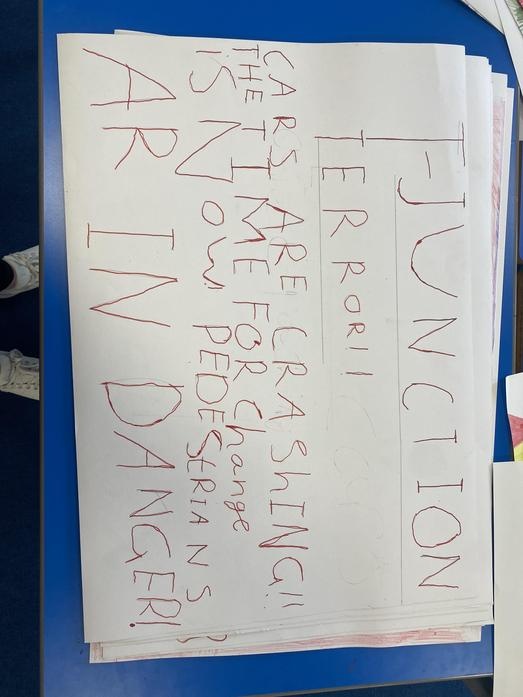 T-JUNCTION
TERROR!!
CARS ARE CRASHING!!
THE TIME FOR change
IS NOW! PEDESTRIANS
AR IN DANGER!